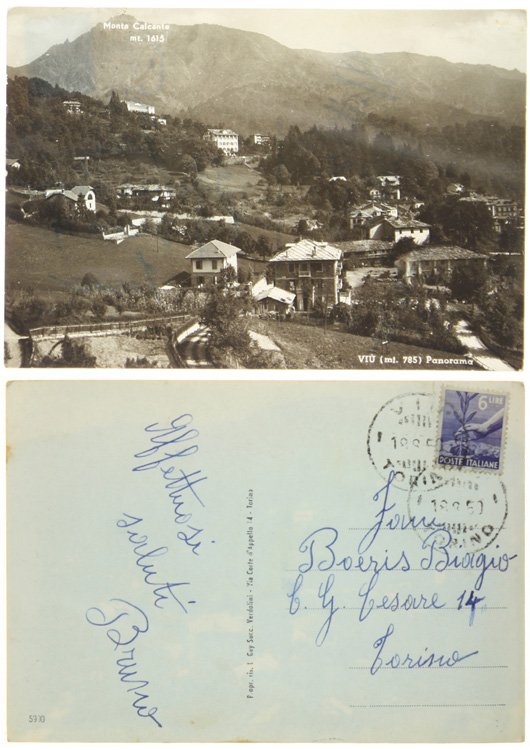 Monte Calcante
mt. 1615
VIÙ (mt. 785) Panorama
Affettuosi
saluti
Bruno
Propr. ris. I. Guy Succ. Verdolini - Via Corte d'Appello 14 - Torino
5900
6 LIRE
POSTE ITALIANE
VIÙ
18 8 50
TORINO
18 8 50
TORINO
Fam.
Boeris Biagio
C. G. Cesare 14
Torino